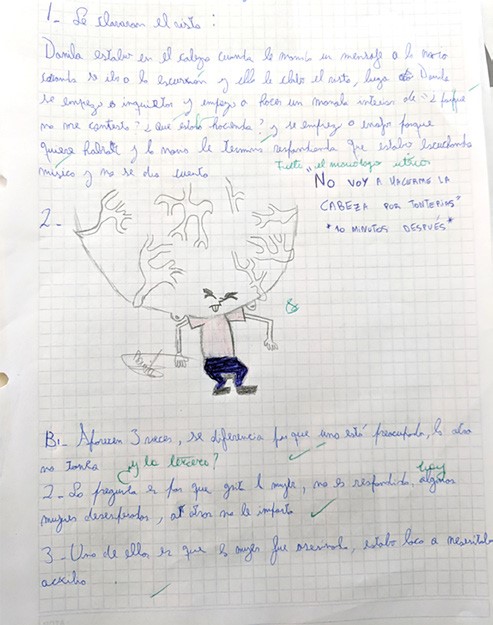 1- Le clavaron el visto :
Danila estaba en el colegio cuando le mando un mensaje a la novo
cuando se iba a la escursión y ella le clavo el visto, luego Danila
se empezo a inquietar y empezo a hacer un monolo interior de "¿porque
no me contesta? ¿Que estaba haciendo? y se empezo a enojar porque
quiere hablar y la novo le termino respondiendo que estaba escuchando
música y no se dio cuenta
Falta el monólogo interior
"NO VOY A HACERME LA
CABEZA POR TONTERIAS"
*10 MINUTOS DESPUÉS*
2-
B1- Aparecen 3 veces, se diferencia porque una está preocupada, la otra
no tanta ¿y la tercera?
2- La pregunta es por que grita la mujer, no es respondida, hay algunas
mujeres desesperadas, al otro no le importa
3- Una de ellas es que la mujer fue asesinada, estaba loca o necesitaba
auxilio.